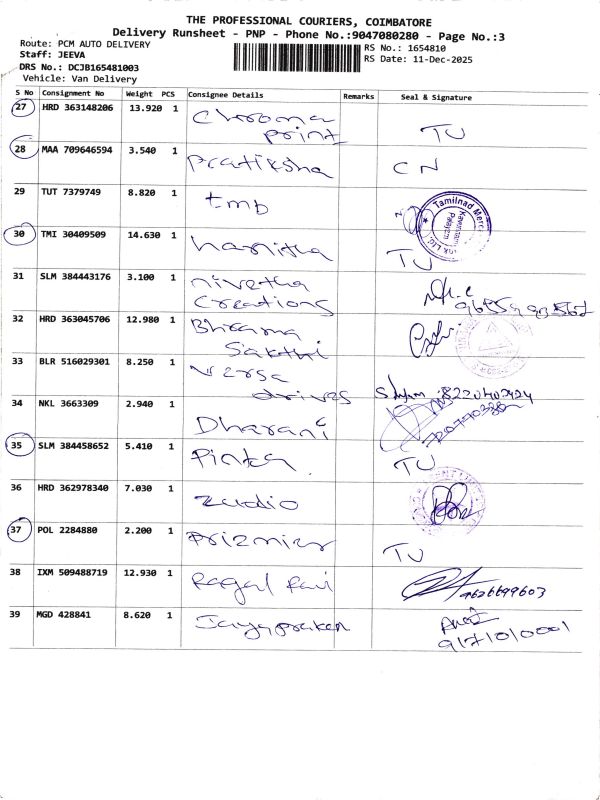 THE PROFESSIONAL COURIERS, COIMBATORE
Delivery Runsheet - PNP - Phone No.:9047080280 - Page No.:3
Route: PCM AUTO DELIVERY
RS No.: 1654810
Staff: JEEVA
RS Date: 11-Dec-2025
DRS No.: DCJB165481003
Vehicle: Van Delivery
S No Consignment No Weight PCS Consignee Details Remarks Seal & Signature
27 HRD 363148206 13.920 1 Chroma
print TU
28 MAA 709646594 3.540 1 Pratiksha CN
29 TUT 7379749 8.820 1 tmb Tamilnad Merc
30 TMI 30409509 14.630 1 harsitha TU
31 SLM 384443176 3.100 1 nivetha
Creations
32 HRD 363045706 12.980 1 Bhrama
Sakthi
33 BLR 516029301 8.250 1 Versa
drives 8220402424
34 NKL 3663309 2.940 1 Dharani
35 SLM 384458652 5.410 1 Pinka TU
36 HRD 362978340 7.030 1 Zudio
37 POL 2284880 2.200 1 TU
38 IXM 509488719 12.930 1 Ragal Ravi 9626699603
39 MGD 428841 8.620 1 Jayaprakash